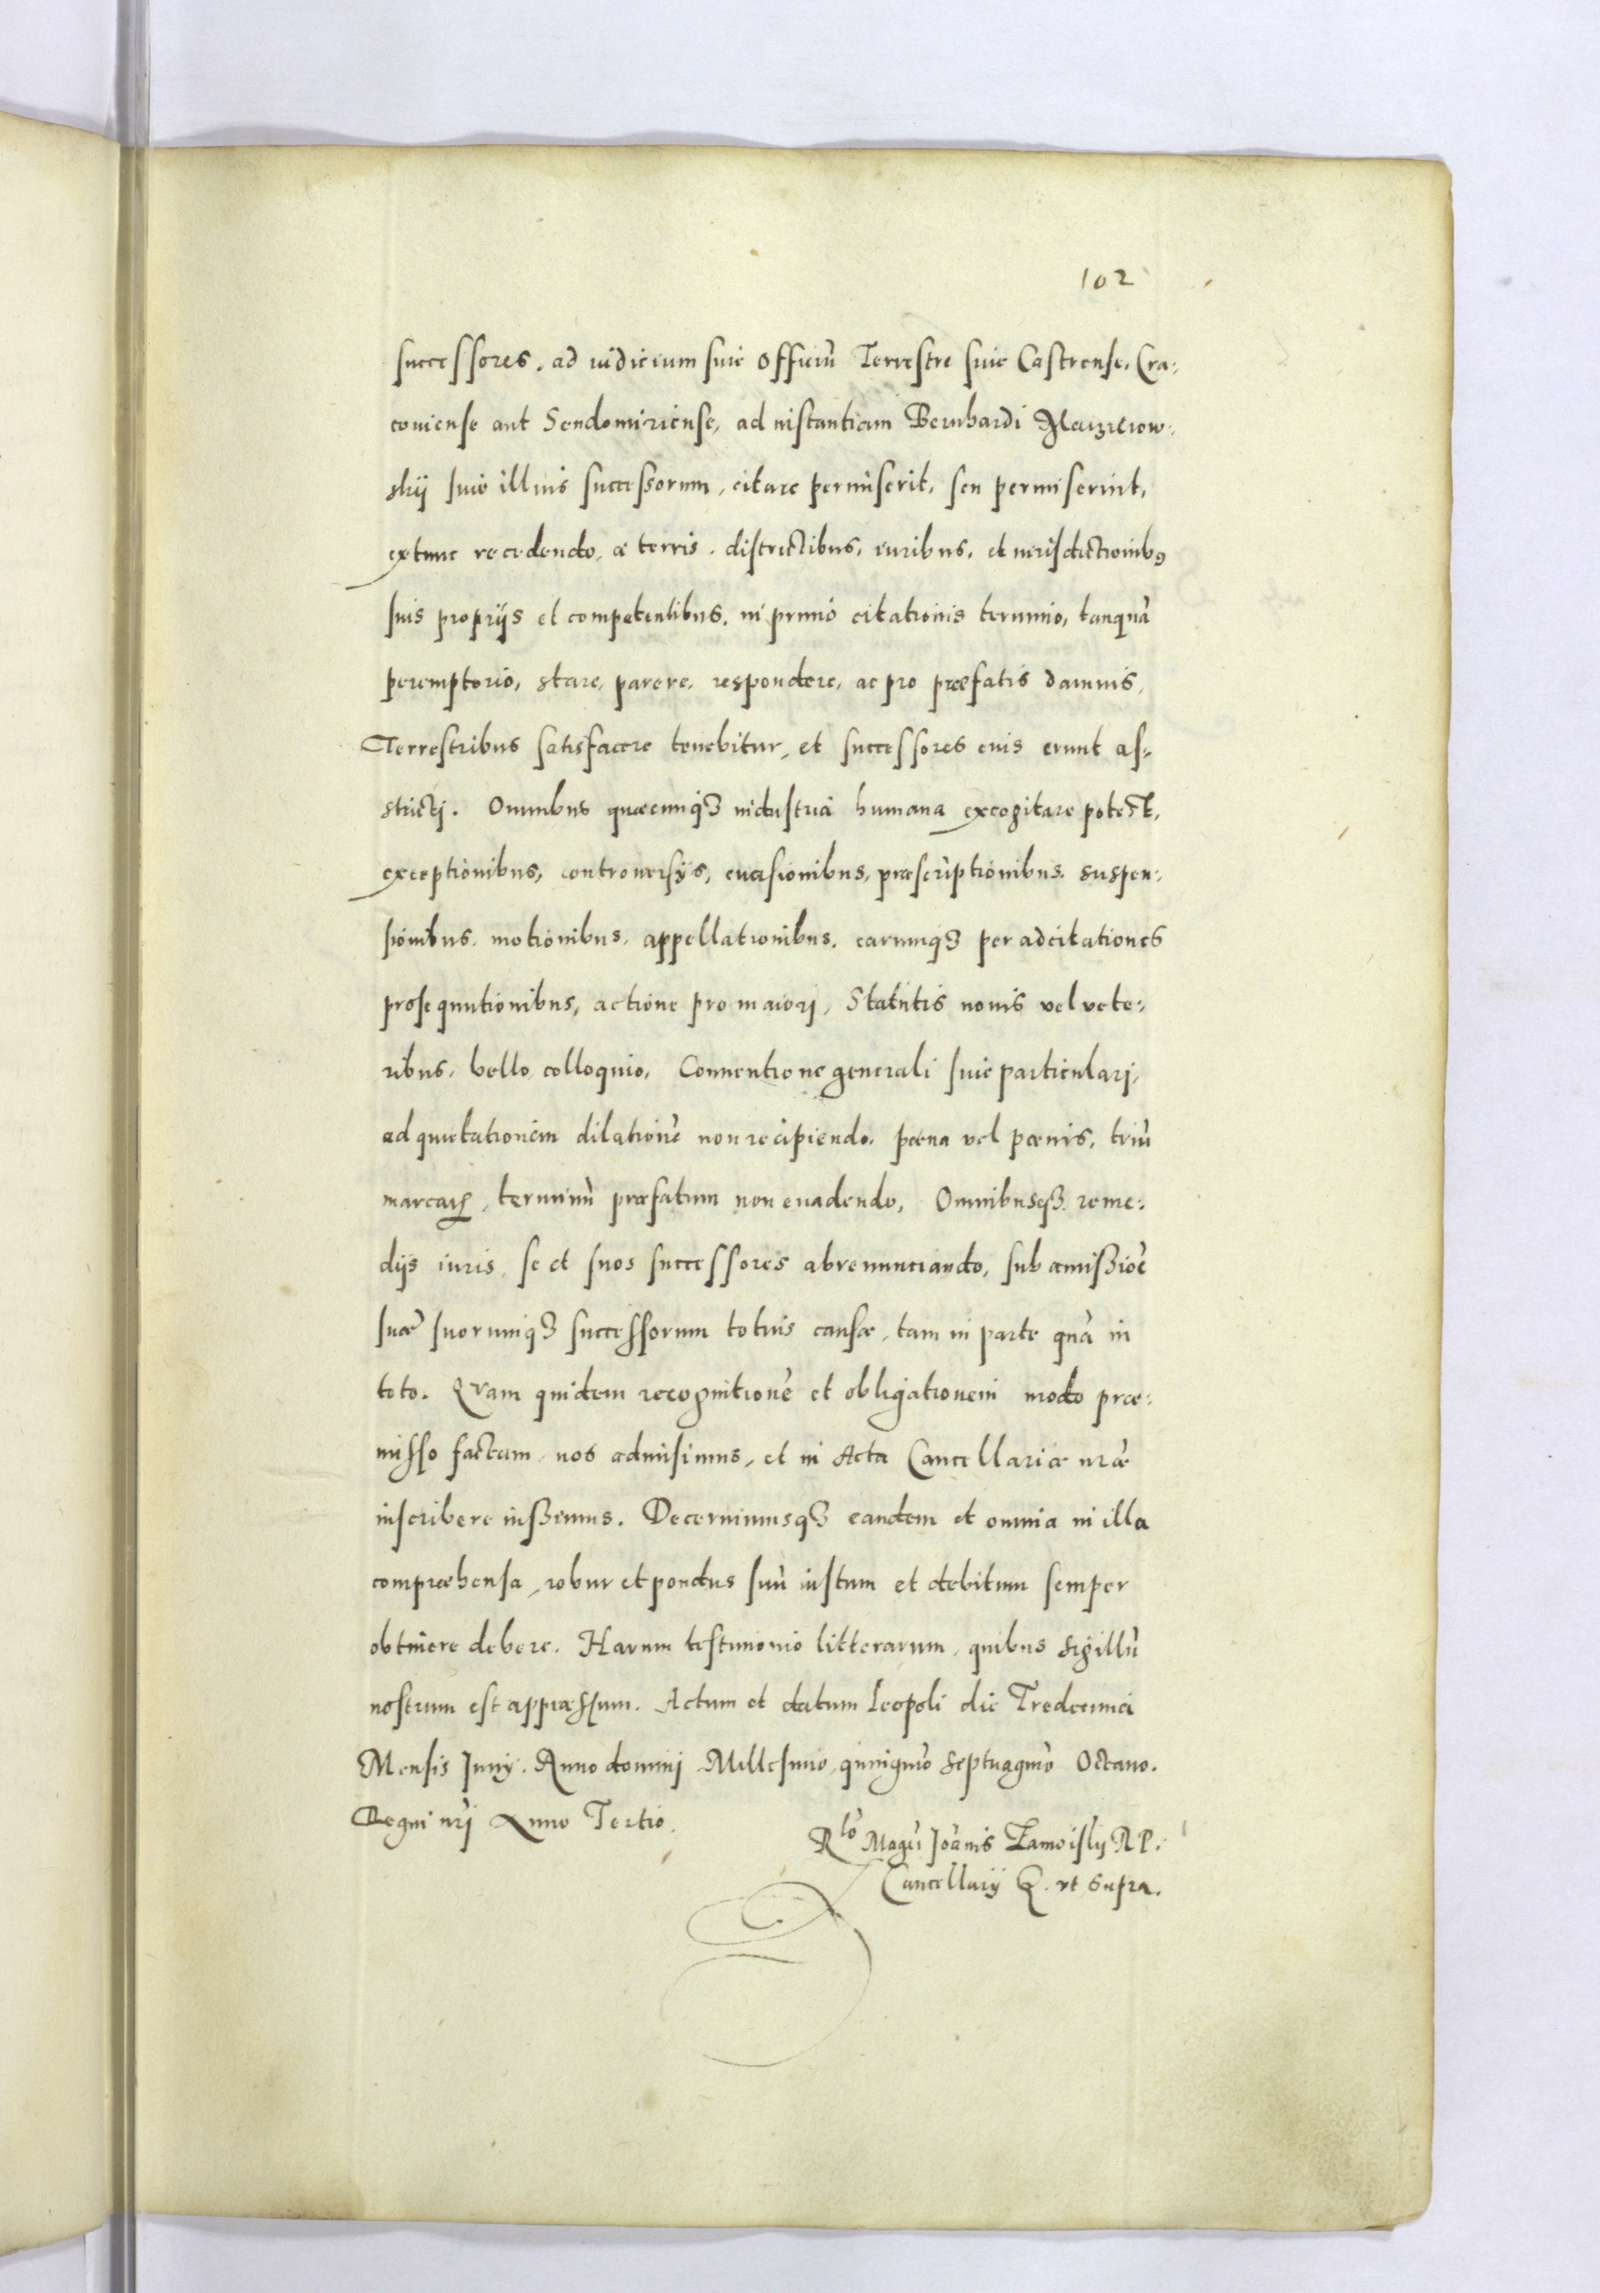 102
successores, ad iudicium siue Officiũ Terrestre siue Castrense, Cra:
couiense aut Sendomiriense, ad instantiam Bernhardi Maczieiow:
skij siue illius successorum, citare permiserit, seu permiserint,
extunc recedendo, a terris, districtibus, iuribus, et iurisdictionibꝯ
suis proprijs et competentibus, in primo citationis termino, tanquã
peremptorio, stare, parere, respondere, ac pro præfatis damnis,
Terrestribus satisfacere tenebitur, et successores eius erunt as:
stricti. Omnibus quæcunqꝫ industria humana excogitare potest,
exceptionibus, controuersijs, euasionibus, præscriptionibus, suspen:
sionibus, motionibus, appellationibus, earumqꝫ per adcitationes
prosequutionibus, actione pro maiori, Statutis nouis vel vete:
ribus, bello, colloquio, Conuentione generali siue particulari,
ad quietationem dilationẽ non recipiendo, pœna vel pœnis, triũ
marcaꝝ, terminũ præfatum non euadendo, Omnibusqꝫ reme:
dijs iuris, se et suos successores abrenunciando, sub amißioẽ
suæ suorumqꝫ successorum totius causæ, tam in parte quã in
toto. Quam quidem recognitionẽ et obligationem modo præ:
misso factam, nos admisimus, et in Acta Cancellariæ nr̃æ
inscribere iußimus. Decernimusqꝫ eandem et omnia in illa
compræhensa, robur et pondus suũ iustum et debitum semper
obtinere debere. Harum testimonio litterarum, quibus sigillũ
nostrum est appræssum. Actum et datum Leopoli die Tredecima
Mensis Junij. Anno domini Millesimo, quingmõ Septuagmõ Octauo.
Regni nr̃i Anno Tertio.
Rlõ Magci Joãnis Zamoiskij R P.
Cancellarij &. vt supra.